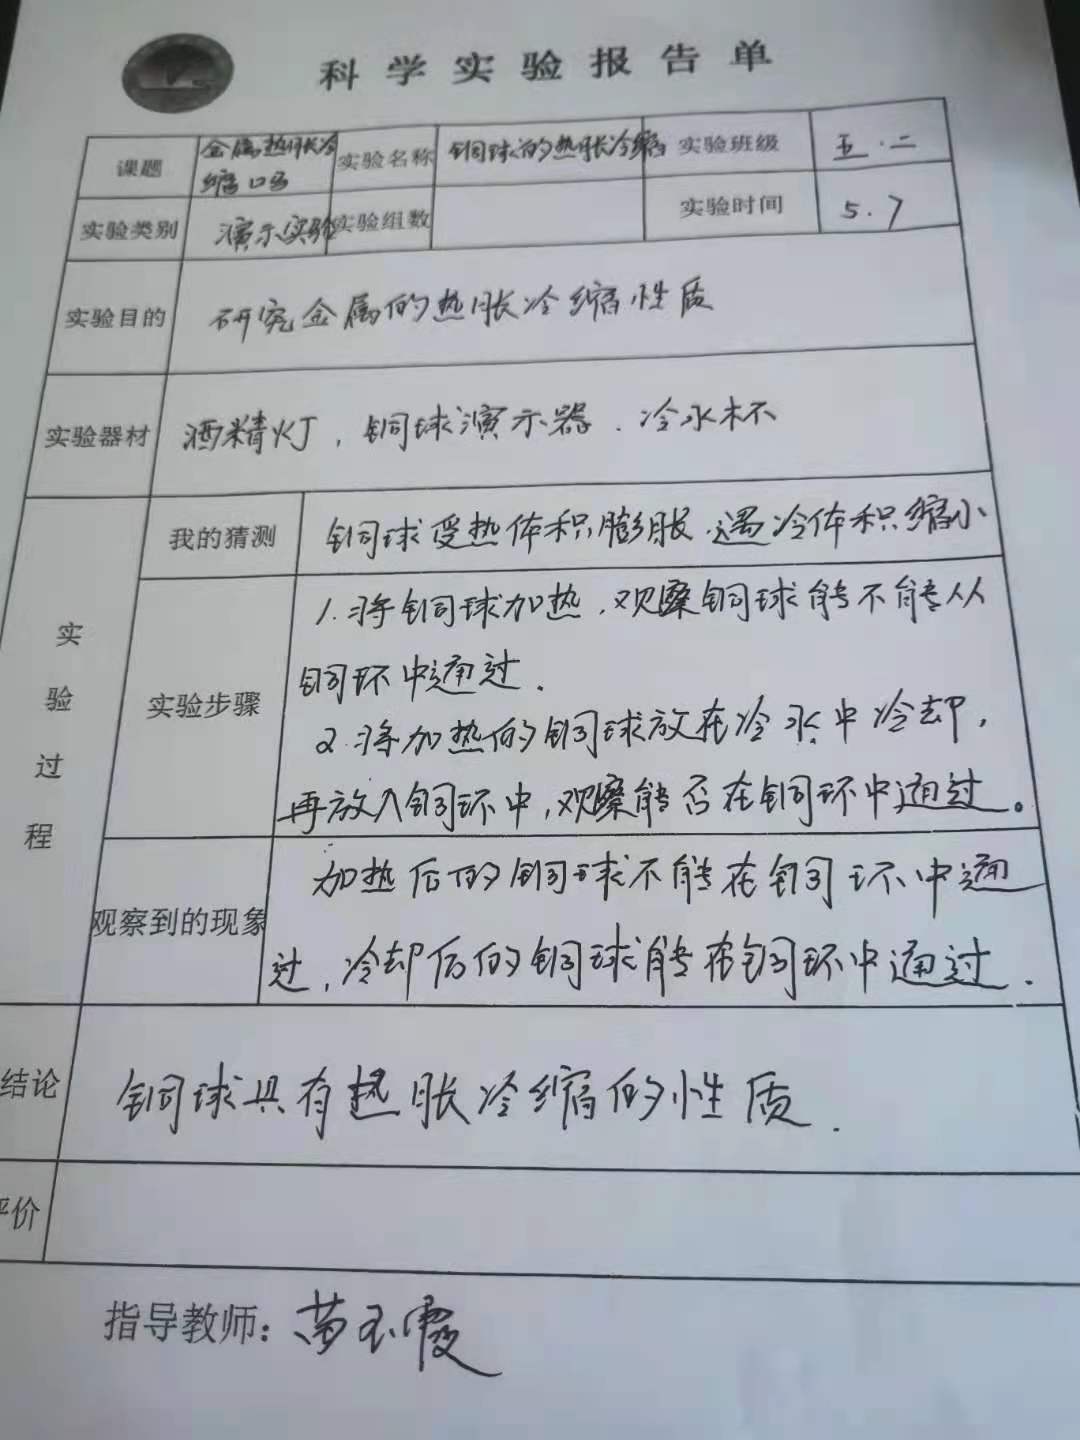 科学实验报告单
课题 金属热胀冷缩吗 实验名称 铜球的热胀冷缩 实验班级 五.二
实验类别 演示实验 实验组数 实验时间 5.7
实验目的 研究金属的热胀冷缩性质
实验器材 酒精灯,铜球演示器.冷水杯
实验过程
我的猜测 铜球受热体积膨胀.遇冷体积缩小
实验步骤
1.将铜球加热,观察铜球能不能从
铜环中通过.
2.将加热的铜球放在冷水中冷却,
再放入铜环中,观察能否在铜环中通过。
观察到的现象
加热后的铜球不能在铜环中通
过,冷却后的铜球能在铜环中通过.
结论 铜球具有热胀冷缩的性质.
评价
指导教师:黄玉霞